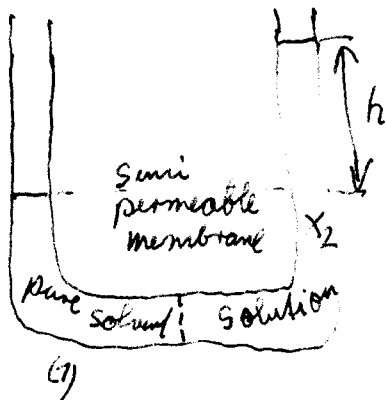 h
Semi
permeable
membrane
x₂
pure solvent
Solution
(1)